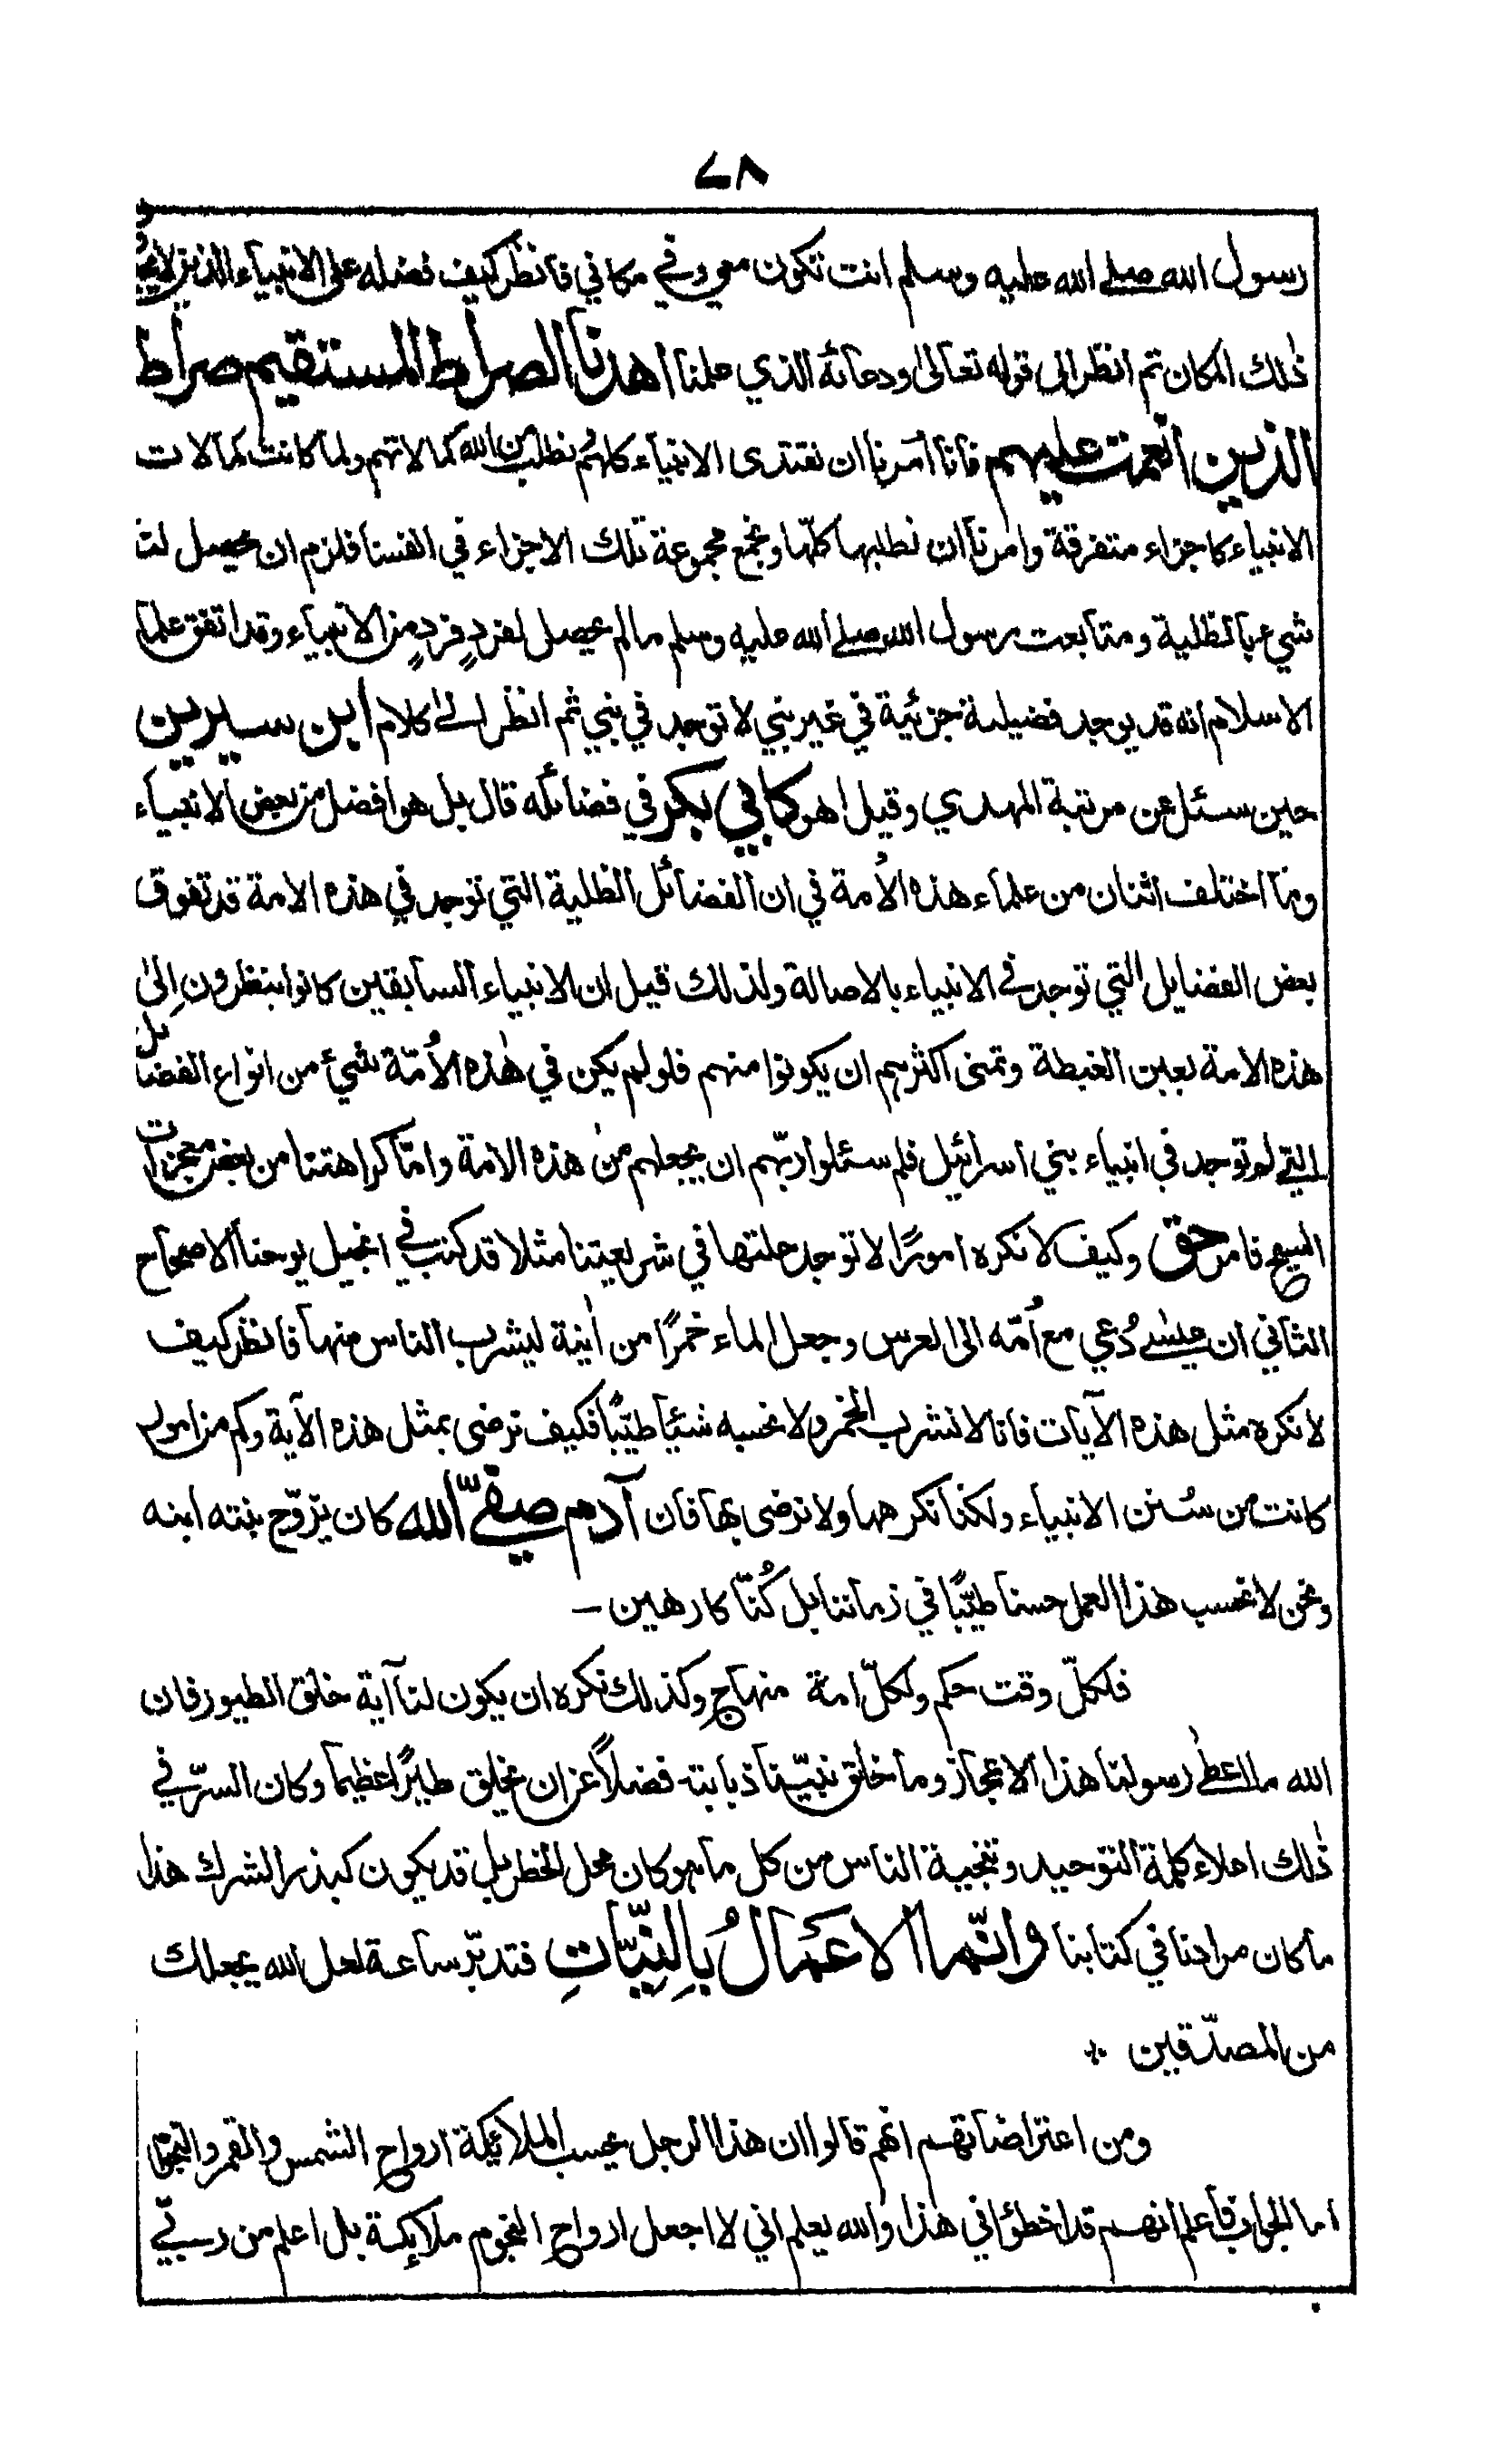 ٧٨
رسول الله صلے الله عليه وسلم انت تكون معي وفي مكاني فانظر كيف فضله على الانبياء الذين
ذٰلك المكان ثم انظر الى قوله تعالىٰ ودعائه الذي علمنا اهدنا الصراط المستقيم صراط
الذين انعمت عليهم فانا امرنا ان نقتدى الانبياء كلهم نطلب من الله كمالاتهم ولما كانت كمالات
الانبياء كاجزاء متفرقة وامرنا ان نطلبها كلّها ونجمع مجموعة تلك الاجزاء في انفسنا فلزم ان يحصل لنا
شيء بالظلية ومتابعت رسول الله صلے الله عليه وسلم مالم يحصل لفردٍ فردٍ من الانبياء وقد اتفق علماء
الاسلام انه قد يوجد فضيلة جزئية في غير نبي لا توجد في نبي ثم انظر الىٰ كلام ابن سيرين
حين سئل عن مرتبة المهدي وقيل اهو كابي بكر في فضائله قال بل هو افضل من بعض الانبياء
وما اختلف اثنان من علماء هذه الأمة في ان الفضائل الظلية التي توجد في هذه الامة قد تفوق
بعض الفضايل التي توجد في الانبياء بالاصالة ولذلك قيل ان الانبياء السابقين كانوا ينظرون إلىٰ
هذه الامة بعين الغبطة وتمنى اكثرهم ان يكونوا منهم فلو لم يكن في هٰذه الأمّة شيئ من انواع الفضايل
التي لم توجد في انبياء بني اسرائيل فلم سئلوا ربّهم ان يجعلهم من هذه الامة وامّا كراهتنا من بعض معجزات
المسيح فامر حق وكيف لا نكره امورًا لا توجد حلتها في شريعتنا مثلا قد كتب في انجيل يوحنا الاصحاح
الثاني ان عيسٰے دُعي مع أمّه الى العرس وجعل الماء خمرًا من اٰنية ليشرب الناس منها فانظر كيف
لا نكره مثل هذه الآيات فانا لا نشرب الخمر ولا نحسبه شيئا طيّبًا فكيف نرضى بمثل هذه الآية وكم من امور
كانت من سُنن الانبياء ولكنا نكرهها ولا نرضى بها فان آدم صفيّ الله كان يزوّج بنته ابنه
ونحن لا نحسب هذا العمل حسنا طيّبًا في زماننا بل كُنّا كارهين –
فلكلّ وقت حكم ولكلّ امة منهاج وكذلك نكره ان يكون لنا آية خلق الطيور فان
الله ما اعطٰے رسولنا هذا الاعجاز وما خلق نبيّنا ذبابة فضلاً عن ان يخلق طيرًا عظيما وكان السرّ في
ذٰلك اعلاء كلمة التوحيد وتنجية الناس من كل ما هو كان محل الخطر بل قد يكون كبذر الشرك هذا
ما كان مرادنا في كتابنا وانّما الاعمالُ بالنيّاتِ فتدبّر ساعة لعل الله يجعلك
من المصدّقين *
ومن اعتراضاتهم انهم قالوا ان هذا الرجل يحسب الملائكة ارواح الشمس والقمر والنجوم
اما الجواب فاعلم انهم قد اخطؤا في هٰذا والله يعلم اني لا اجعل ارواح النجوم ملائكة بل اعلم من ربّي